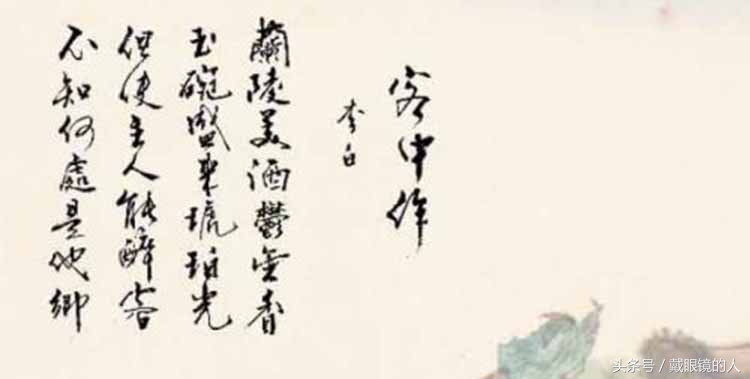 客中作
李白
蘭陵美酒鬱金香
玉碗盛來琥珀光
但使主人能醉客
不知何處是他鄉
头条号 / 戴眼镜的人